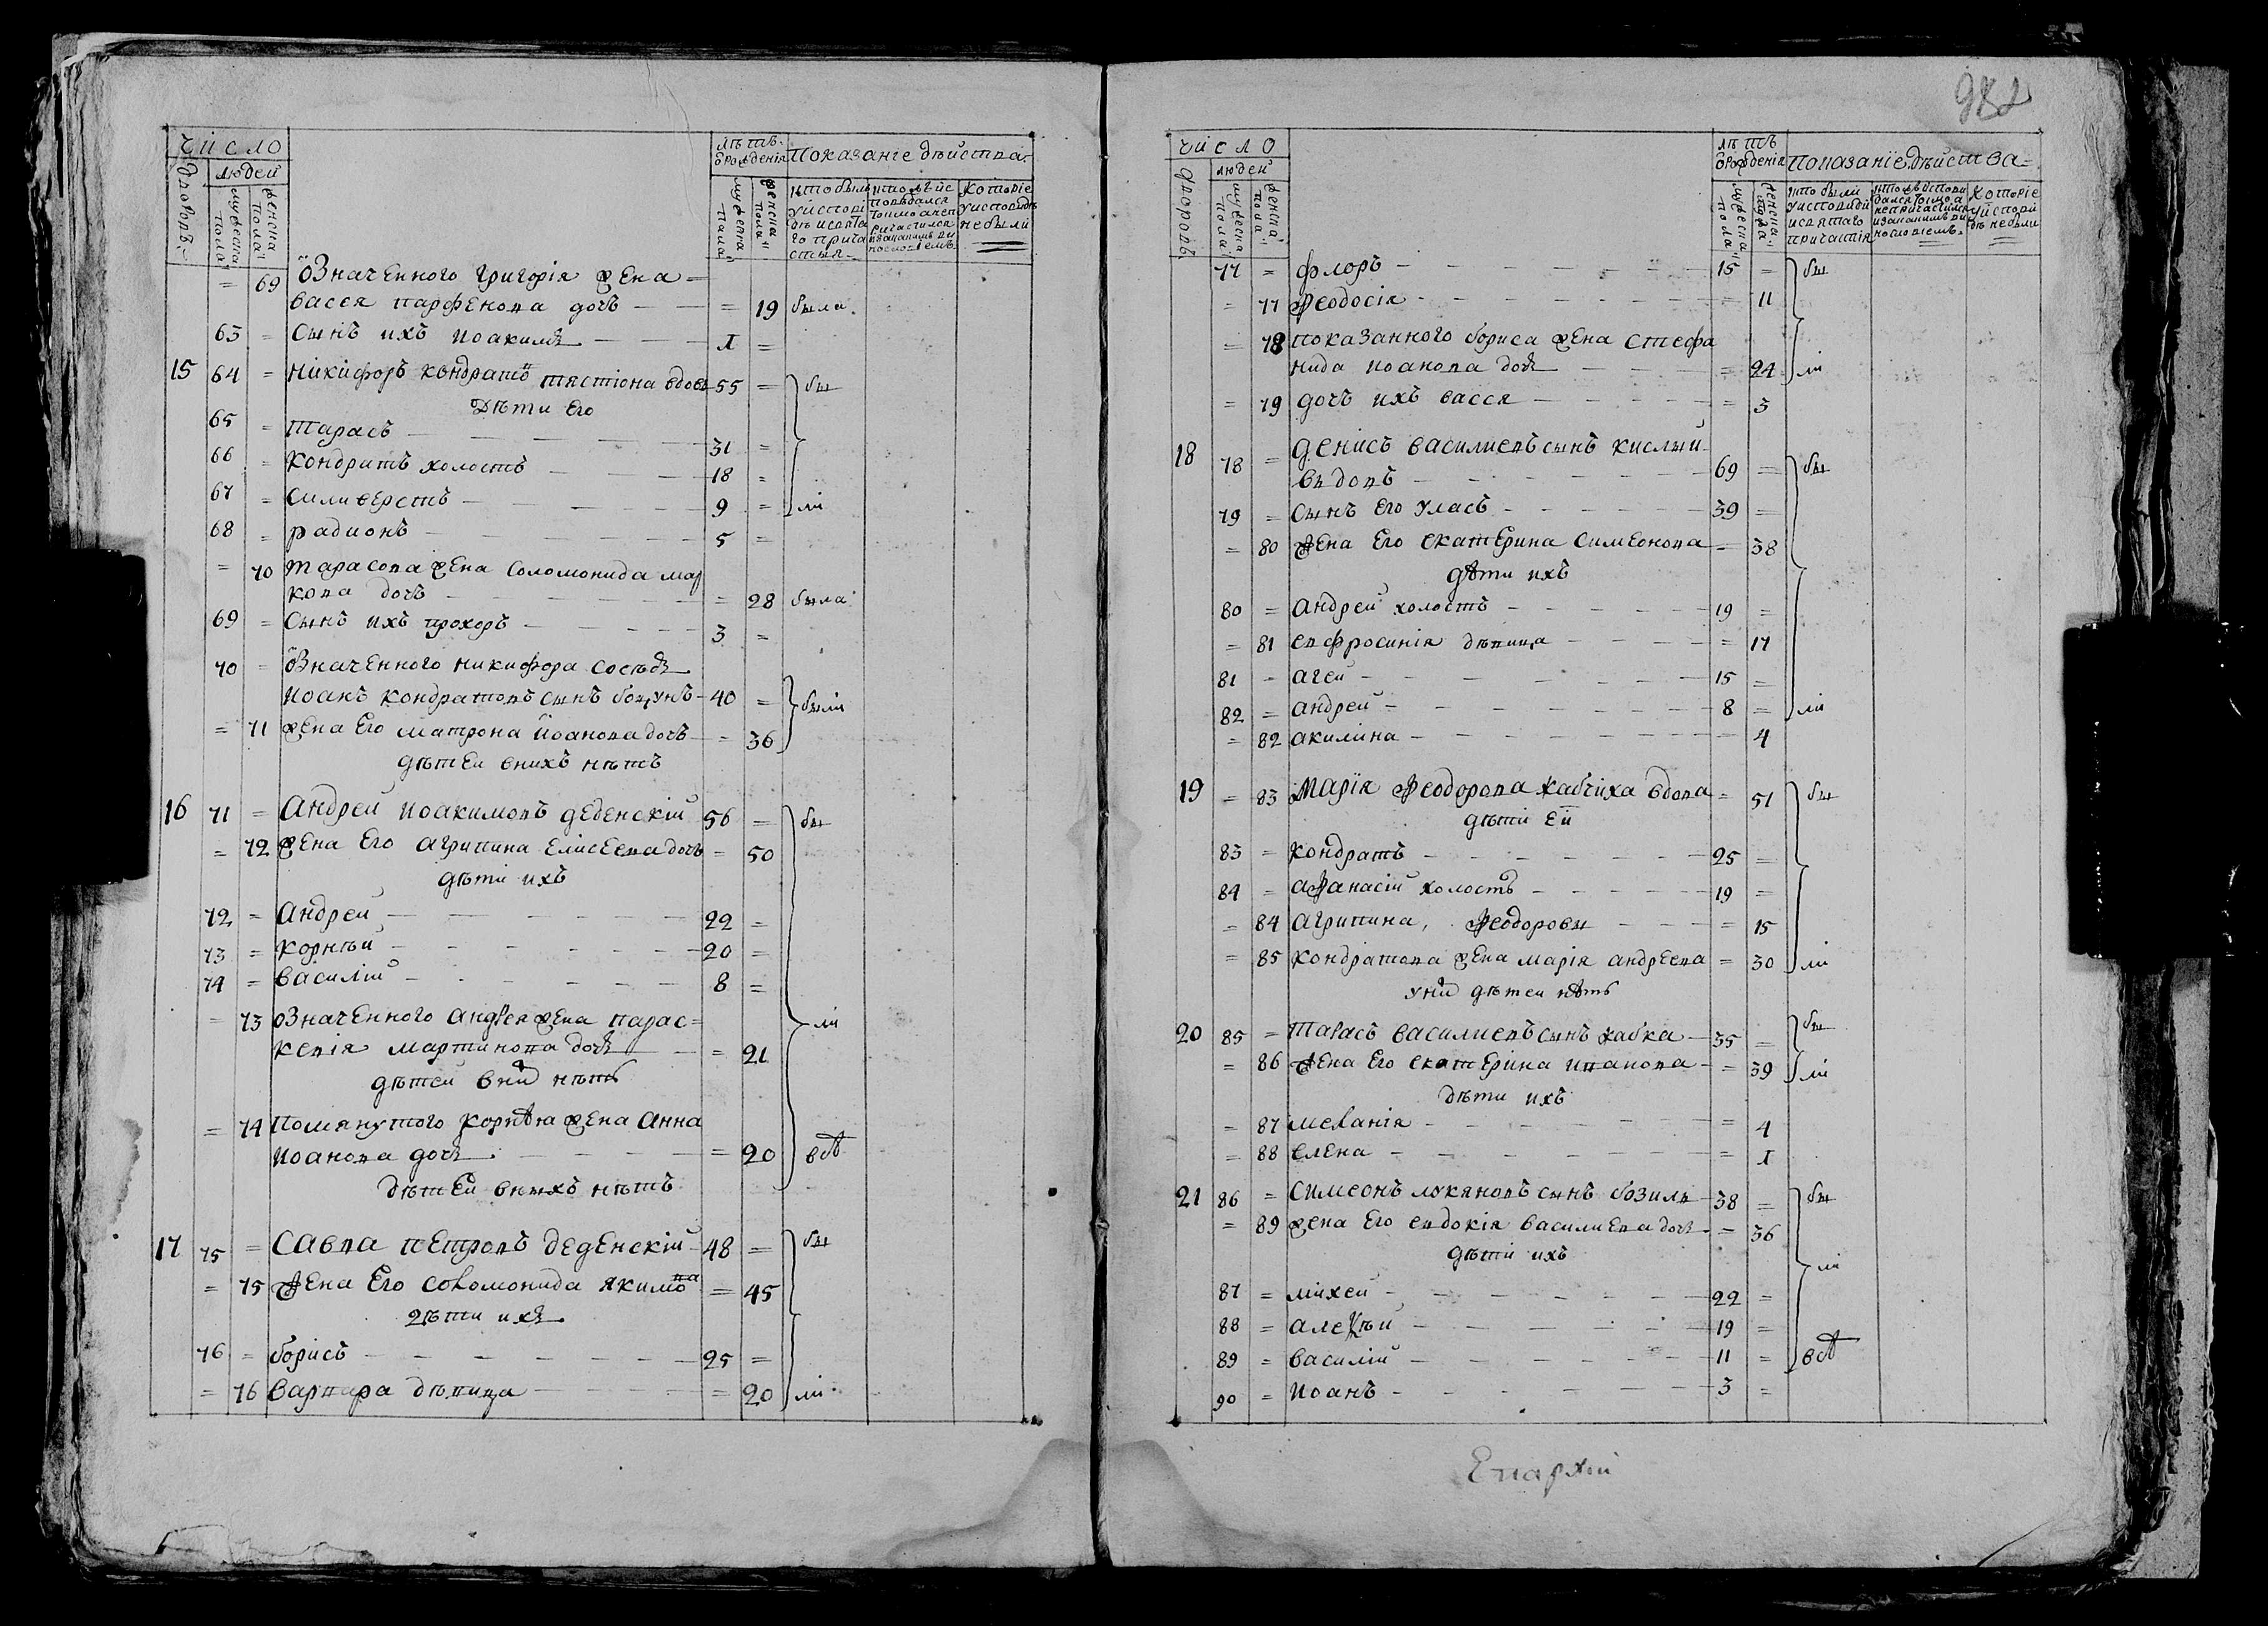 число
лѣтъ
ѿрожденія
Показаніе дѣйства
дворовъ
людей
мужеска пола
женска пола
мужеска пола
женска пола
кто были у исповѣди и святаго причастія
которіе у исповѣди не были
= 69 ѿзначенного григорія жена =
васся парфенова дочъ — = 19 была
63 = сынъ ихъ иоакимъ — 1 =
15 64 = никифоръ кондратовъ вдовъ 55 = бы
дѣти его
65 = тарасъ — 31 =
66 = кондратъ холостъ — 18 =
67 = сильверстъ — 9 = ли
68 = радионъ — 5 =
= 70 тарасова жена соломонида мар
кова дочъ — = 28 была
69 = сынъ ихъ прохоръ — 3 =
70 = ѿзначенного никифора сосѣдъ
иоанъ кондратовъ сынъ боцунъ 40 = были
= 71 жена его матрона иоанова дочъ = 36
дѣтей внихъ нѣтъ
16 71 = андрей иоакимовъ деденскій 56 = бы
= 72 жена его агрипина елисеева дочъ = 50
дѣти ихъ
72 = андрей — 22 =
73 = корнѣй — 20 =
74 = василій — 8 =
= 73 означенного андрея жена парас=
кевія мартинова дочъ — = 21 ли
дѣтей вний нѣтъ
= 74 помянутого корнѣя жена анна
иоанова дочъ — = 20 всѣ
дѣтей внихъ нѣтъ
17 75 = савва петровъ деденскій 48 = бы
= 75 жена его соломонида якимова = 45
дѣти ихъ
76 = борисъ — 25 =
= 76 варвара дѣвица — = 20 ли
982
число
лѣтъ
ѿрожденія
показаніе дѣйства
дворовъ
людей
мужеска пола
женска пола
мужеска пола
женска пола
кто были у исповѣди и святаго причастія
которіе у исповѣди не были
77 = флоръ — 15 = бы
= 77 феодосія — = 11
= 78 показанного бориса жена стефа
нида иоанова дочъ — = 24 ли
= 79 дочъ ихъ васся — = 3
18 78 = денисъ василиевъ сынъ кислый
вдовъ — 69 = бы
79 = сынъ его уласъ — 39 =
= 80 жена его екатерина симеонова = 38
дѣти ихъ
80 = андрей холостъ — 19 =
= 81 евфросинія дѣвица — = 17
81 = агей — 15 =
82 = андрей — 8 = ли
= 82 акилина — 4
19 = 83 марія феодорова жабчиха вдова = 51 бы
дѣти ей
83 = кондратъ — 25 =
84 = афанасій холостъ — 19 =
= 84 агрипина, феодоровы — = 15
= 85 кондратова жена марія андреева = 30 ли
уний дѣтей нѣтъ
20 85 = тарасъ василиевъ сынъ жабка 35 = бы
= 86 жена его екатерина иванова = 39 ли
дѣти ихъ
= 87 меланія — = 4
= 88 елена — = 1
21 86 = симеонъ лукяновъ сынъ 38 = бы
= 89 жена его евдокія василиева дочъ = 36
дѣти ихъ
ли
87 = михей — 22 =
88 = алексѣй — 19 =
89 = василій — 11 = всѣ
90 = иоанъ — 3 =
Епархіи